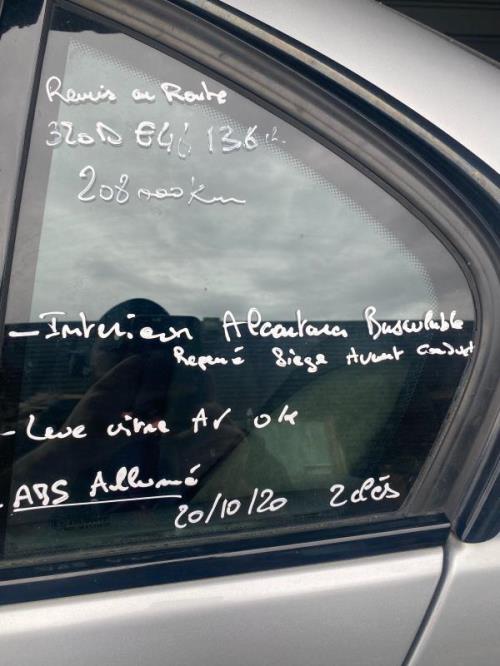 Remis en Route
320D E46 136 ch
208 000 km
- Interieur Alcantara Basculable
Reparé Siege Avant Conduct
- Leve vitre AV ok
- ABS Allumé
20/10/20 2 clés